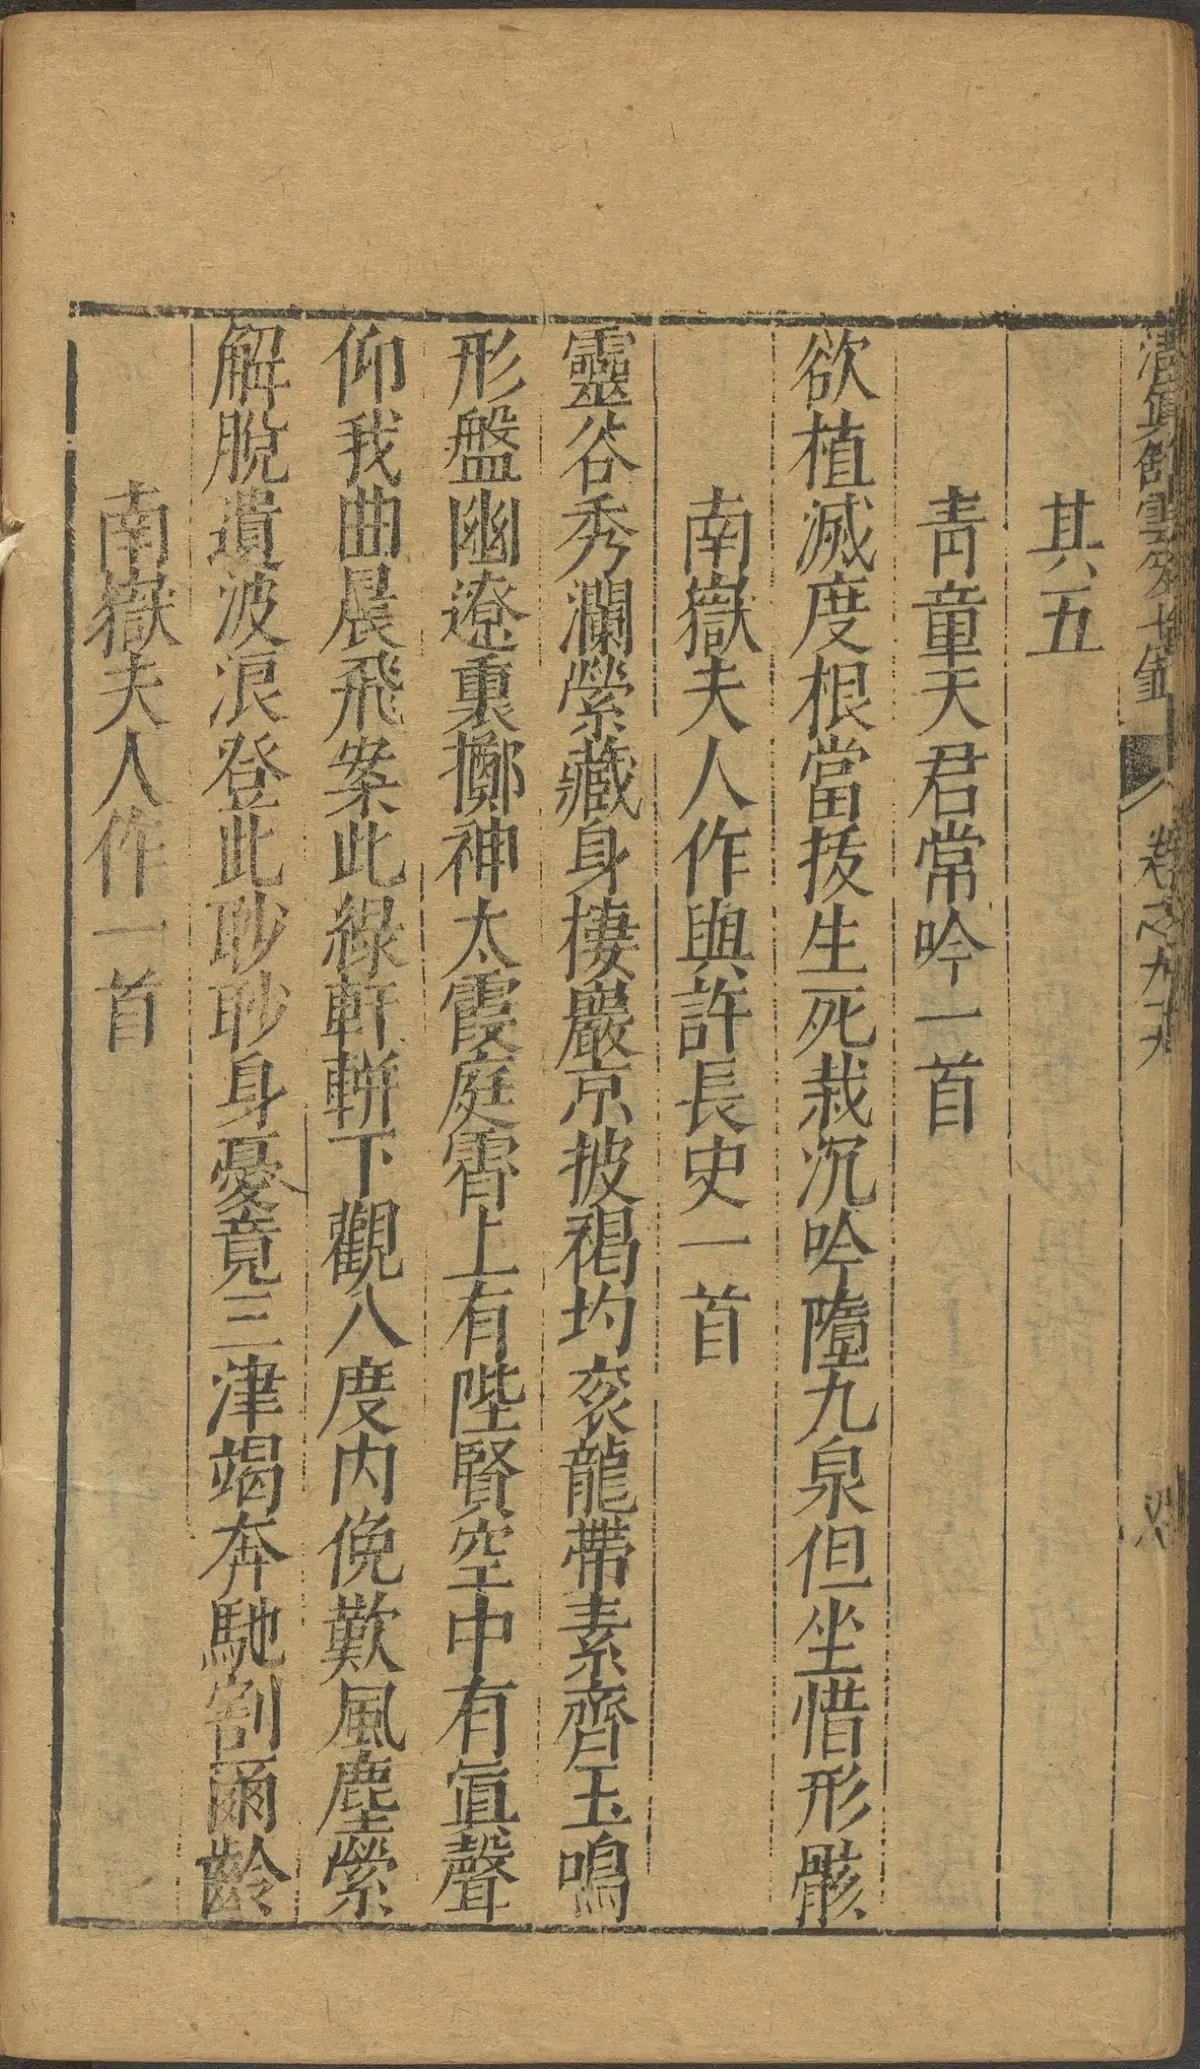 清真館雲笈七籤 卷之九十
其五
青童天君常吟一首
欲植滅度根當拔生死栽沉吟墮九泉但坐惜形骸
南嶽夫人作與許長史一首
靈谷秀瀾縈藏身棲巖京披褐均袞龍帶素齊玉鳴
形盤幽遼裏擲神太霞庭霄上有陛賢空中有眞聲
仰我曲晨飛案此綠軒軿下觀八度內俛歎風塵縈
解脫遺波浪登此眇眇身憂竟三津竭奔馳割爾齡
南嶽夫人作一首